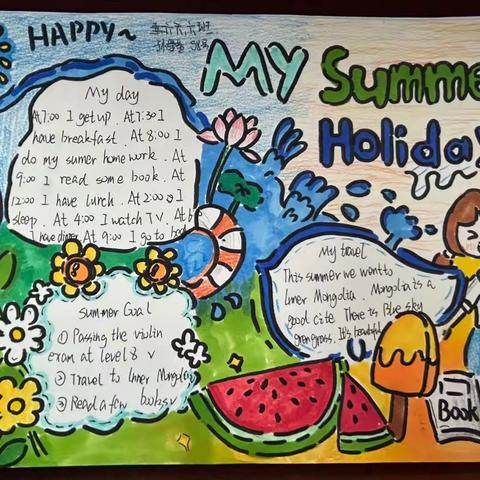 HAPPY~
MY Summe
Holiday
My day
At 7:00 I get up. At 7:30 I
have breakfast. At 8:00 I
do my sumer homework. At
9:00 I read some book. At
12:00 I have lurch. At 2:00 I
sleep. At 4:00 I watch TV. At
I have dinner. At 9:00 I go to bed
My travel
This summer we want to
Inner Mongolia. Mongolia is a
good cite. There is Blue sky
green grass. It's beautiful
Summer Goal
① Passing the violin
exam at level 8 v
② Travel to Inner Mongolia
③ Read a few books v
Book